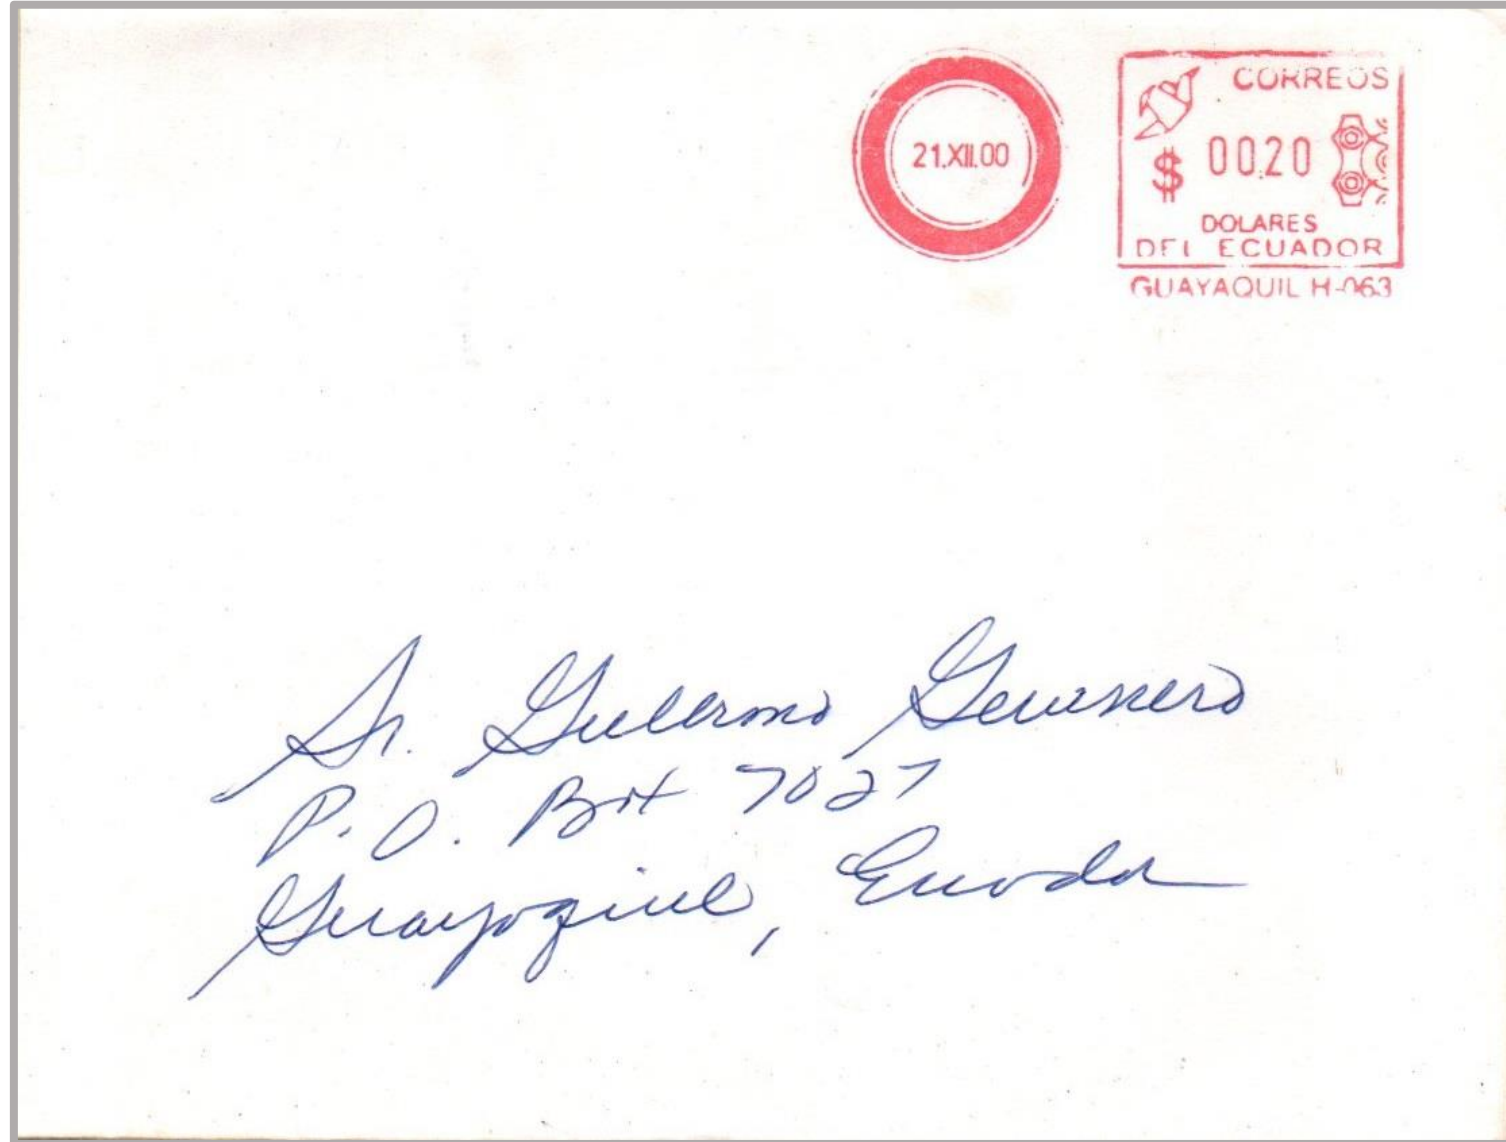 21.XII.00
CORREOS
$ 00.20
DOLARES
DEL ECUADOR
GUAYAQUIL H-063
Sr. Guillermo
P.O. Box 7027
Guayaquil, Ecuador